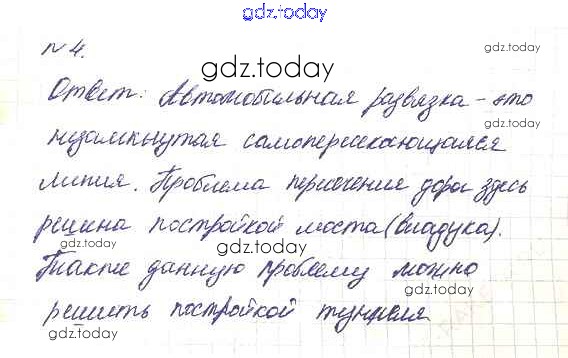 gdz.today
№4.
gdz.today
gdz.today
Ответ: Автомобильная развязка - это
незамкнутая самопересекающаяся
gdz.today
линия. Проблема пересечение дорог здесь
решина постройкой моста (виадука).
gdz.today
gdz.today
Также данную проблему можно
решить постройкой тунцеля
gdz.today
gdz.today